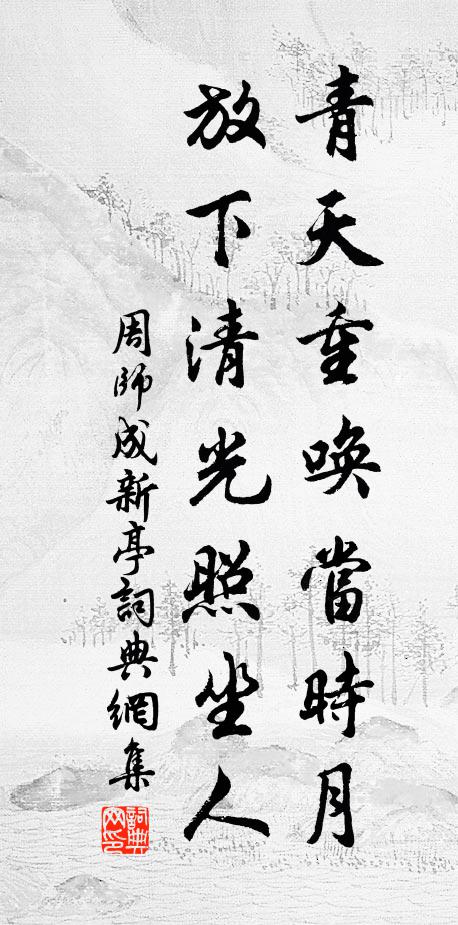 青天重喚當時月
放下清光照坐人
周師成新亭詞典網集
詞典網印